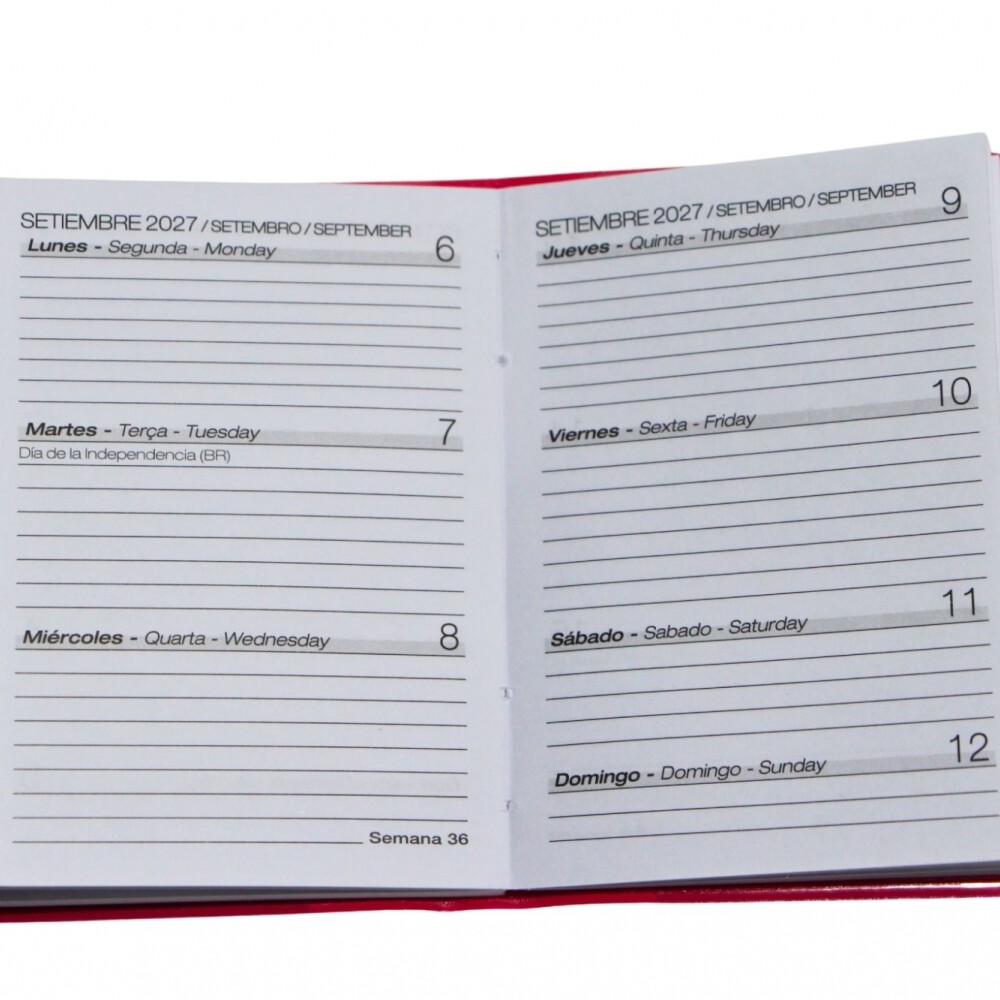 SETIEMBRE 2027 / SETEMBRO / SEPTEMBER
Lunes - Segunda - Monday 6
Martes - Terça - Tuesday 7
Día de la Independencia (BR)
Miércoles - Quarta - Wednesday 8
Semana 36
SETIEMBRE 2027 / SETEMBRO / SEPTEMBER
Jueves - Quinta - Thursday 9
Viernes - Sexta - Friday 10
Sábado - Sabado - Saturday 11
Domingo - Domingo - Sunday 12